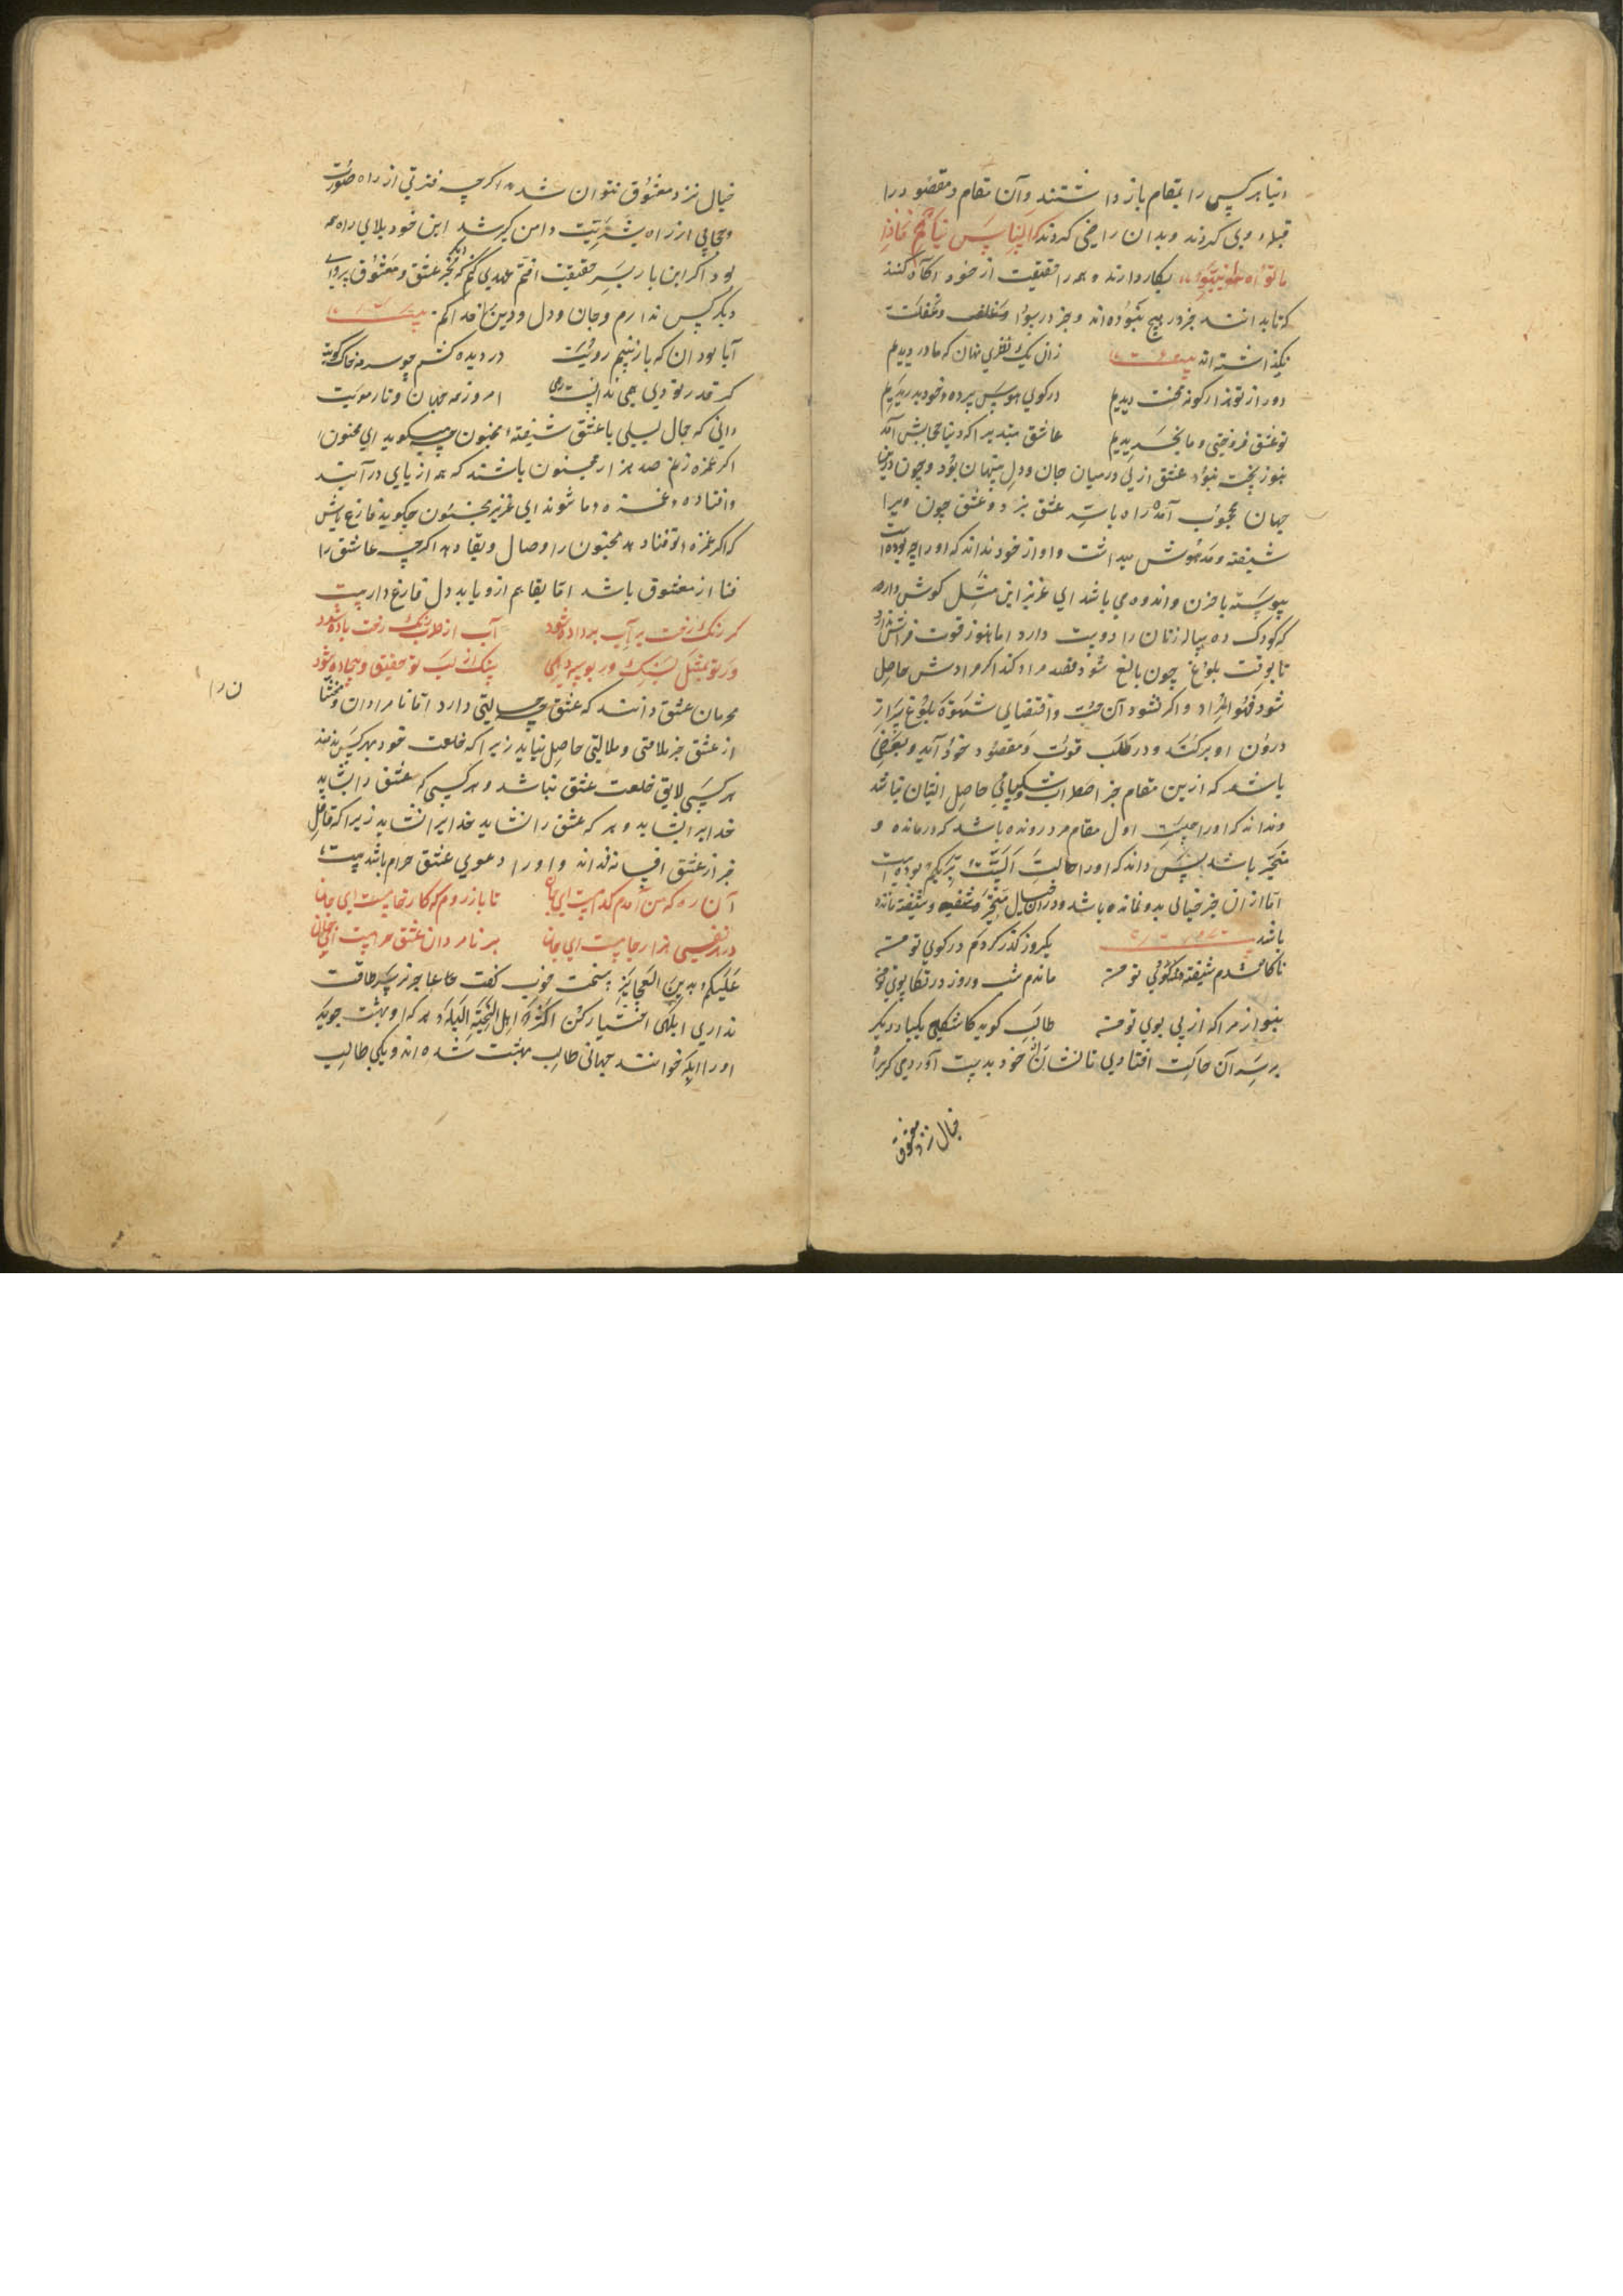 دنیا هر کس را بمقام باز داشتند وآن مقام ومقصود را
قبلهٔ وی کردند وبدان راضی کردند که الناس نیام فاذا
ماتوا انتبهوا بکار دارند وهمه را حقیقت از خود آگاه کنند
که تا بدانند جز در هیچ نبوده اند وجز در وغفلت
نگذاشته اند بیت زان یک نظری نهان که ما در دیدیم
دور از تو هزار گونه محنت دیدیم در کوی هوس پرده خود بدریدیم
تو عشق فروختی و ما بخریدیم عاشق مبتدی را که دنیا حجابش آمد
هنوز پخته نبود عشق ازلی در میان جان ودل پنهان بود وچون درین
جهان محجوب آمده راه باشد عشق چون ویرا
شیفته ومدهوش میداشت واو از خود نداند که او را چه بوده است
پیوسته با حزن واندوه می باشد ای عزیز این مثل گوش دار
که کودک ده ساله زنان را دوست دارد اما هنوز قوت فراش ندارد
تا بوقت بلوغ چون بالغ شود قصد مراد کند اگر مرادش حاصل
شود فهو المراد واگر نشود آن محبت واقتضای شهوة بلوغ سر از
درون او بر کند ودر طلب قوت ومقصود خود آید وبعضی
باشد که ازین مقام جز اضطراب وشکیبائی حاصل ایشان نباشد
وندانند که او را چیست اول مقام مرد رونده باشد که درمانده و
متحیر باشد پس داند که او را حالت الست بربکم بوده است
اما از آن جز خیالی بدو نمانده باشد ودر آن خیال متحیر وشیفته مانده
باشد یکروز گذر کردم در کوی تو من
ناگاه شدم شیفته تو من
ماندم شب وروز در تکاپوی تو من
بنواز مرا که از پی بوی تو من طالب گوید کاشکی یکبار دیگر
بر سر آن حالت افتادمی تا نشان خود بدست آوردمی که بر
خیال نزد معشوق
خیال نزد معشوق نتوان شد اگرچه فترتی از راه صورت
وحجابی از راه بشریت دامن گیر شد این خود بلای راه
بود اگر این بار بسر حقیقت افتم عهدی کنم که بجز عشق ومعشوق پروای
دیگر کس ندارم وجان ودل ودین فدا کنم بیت
آیا بود آن که باز بینم رویت در دیده کشم چو سرمه خاک کویت
گر قدر تو دی همی ندانست رهی امروز همه جهان وتار مویت
دانی که جمال لیلی با عشق شیفتهٔ مجنون چه میگوید ای مجنون
اگر غمزه زنم صد هزار مجنون باشند که همه از پای در آیند
وافتاده غمزه ما شوند ای عزیز مجنون چگوید فارغ باش
که اگر غمزه تو فنا دهد مجنون را وصال وبقا دهد اگرچه عاشق را
فنا از معشوق باشد اما بقا هم ازو یابد دل فارغ دار بیت
گر رنگ رخت بر آب داده شود آب از طرب رنگ رخت باده شود
ور تو بمثل بسنگ بر بوسه دهی سنگ از لب تو عقیق وبیجاده شود
محرمان عشق دانند که عشق چه حالتی دارد اما نامردان ومخنثان را
از عشق جز ملامتی وملالتی حاصل نیاید زیرا که خلعت خود بهر کس ندهند
هر کسی لایق خلعت عشق نباشد وهر کسی که عشق را نشاید
خدایرا نشاید وهر که عشق را نشاید خدایرا نشاید زیرا که
جز از عشق افسانه نداند واو را دعوی عشق حرام باشد بیت
آن ره که من آمدم کدام است ای جان تا باز روم که کار خام است ای جان
در هر نفسی هزار جا است ای جان بر نامردان عشق حرام است ای جان
علیکم بدین العجایز سخت خوب گفت
نداری ابلهی اختیار کن اکثر اهل الجنة البله هر که او بهشت جوید
او را ابله خوانند جهانی طالب بهشت شده اند ویکی طالب
ن را